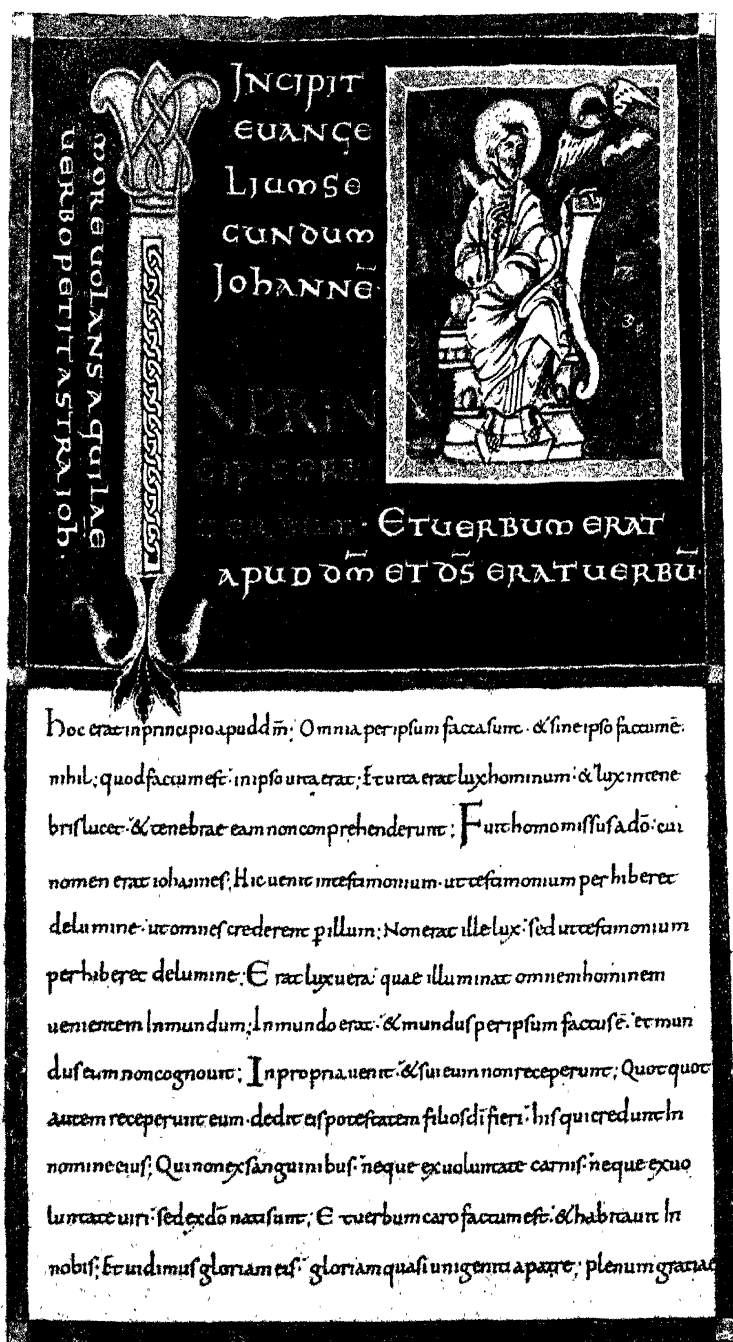 INCIPIT
EVANGE
LIUM SE
CUNDUM
JOHANNĒ
MORE UOLANS AQUILAE
UERBO PETIT ASTRA IOH.
NPRIN
ETUERBUM ERAT
APUD DM̄ ET DS̄ ERAT UERBŪ.
hoc erat in principio apud dm̄; Omnia per ipsum facta sunt. & sine ipso factum ē.
nihil; quod factum est. in ipso uita erat; Et uita erat lux hominum. & lux in tene
bris lucet. & tenebrae eam non conprehenderunt; Fuit homo missus a dō. cui
nomen erat iohannes; Hic uenit in testimonium. ut testimonium perhiberet
de lumine. ut omnes crederent p illum; Non erat ille lux. sed ut testimonium
perhiberet de lumine; Erat lux uera. quae illuminat omnem hominem
uenientem In mundum; In mundo erat. & mundus per ipsum factus ē. et mun
dus eum non cognouit; In propria uenit. & sui eum non receperunt; Quotquot
autem receperunt eum. dedit eis potestatem filios dī fieri. his qui credunt In
nomine eius; Qui non ex sanguinibus. neque ex uoluntate carnis. neque ex uo
luntate uiri. sed ex dō nati sunt; Et uerbum caro factum est. & habitauit In
nobis; Et uidimus gloriam eis. gloriam quasi unigeniti a patre. plenum gratiae